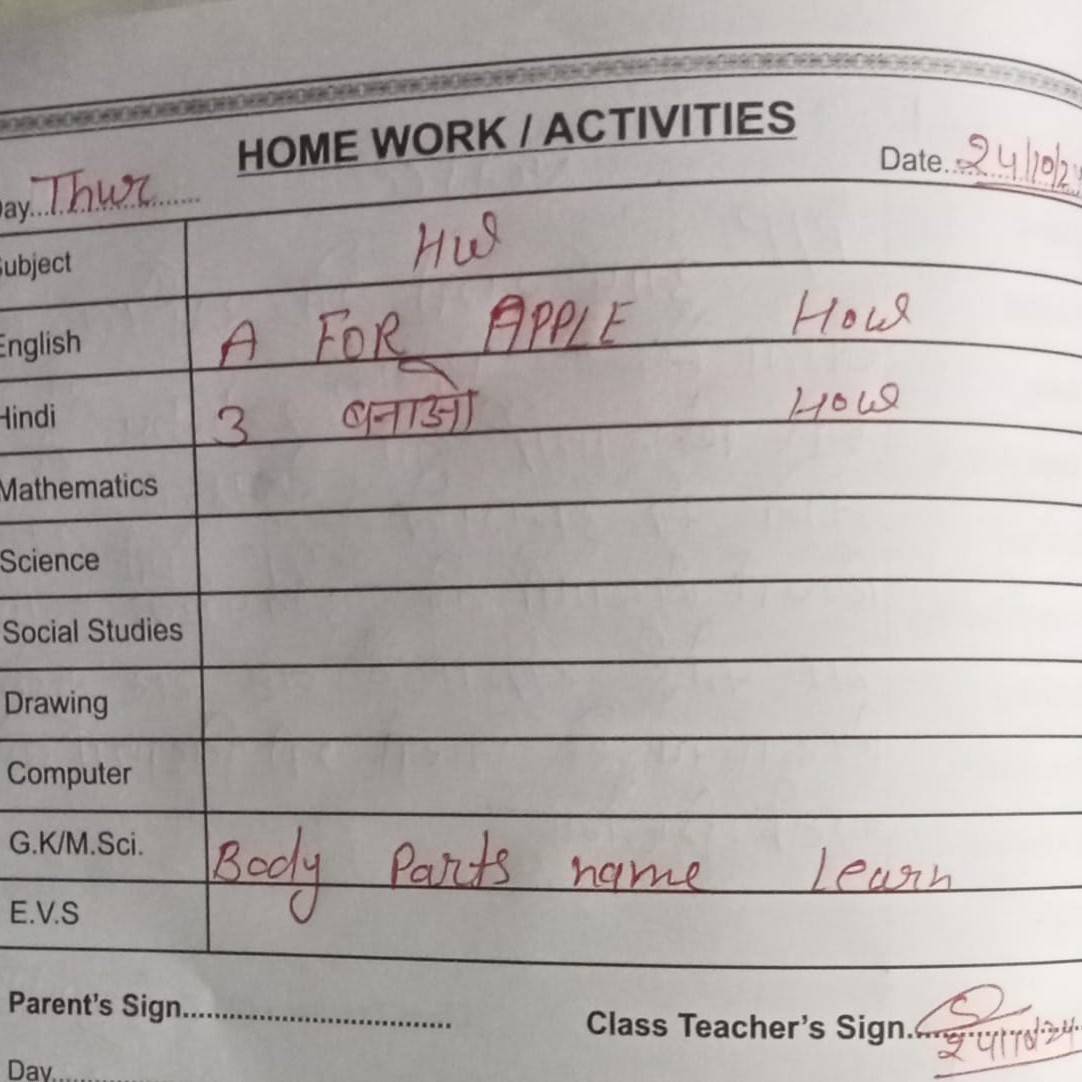 HOME WORK / ACTIVITIES
Day...Thur........ Date...24/10/24
Subject HW
English A FOR APPLE How
Hindi 3 बनाओ How
Mathematics
Science
Social Studies
Drawing
Computer
G.K/M.Sci. Body Parts name Learn
E.V.S
Parent's Sign................................ Class Teacher's Sign..........
24/10/24
Day...........